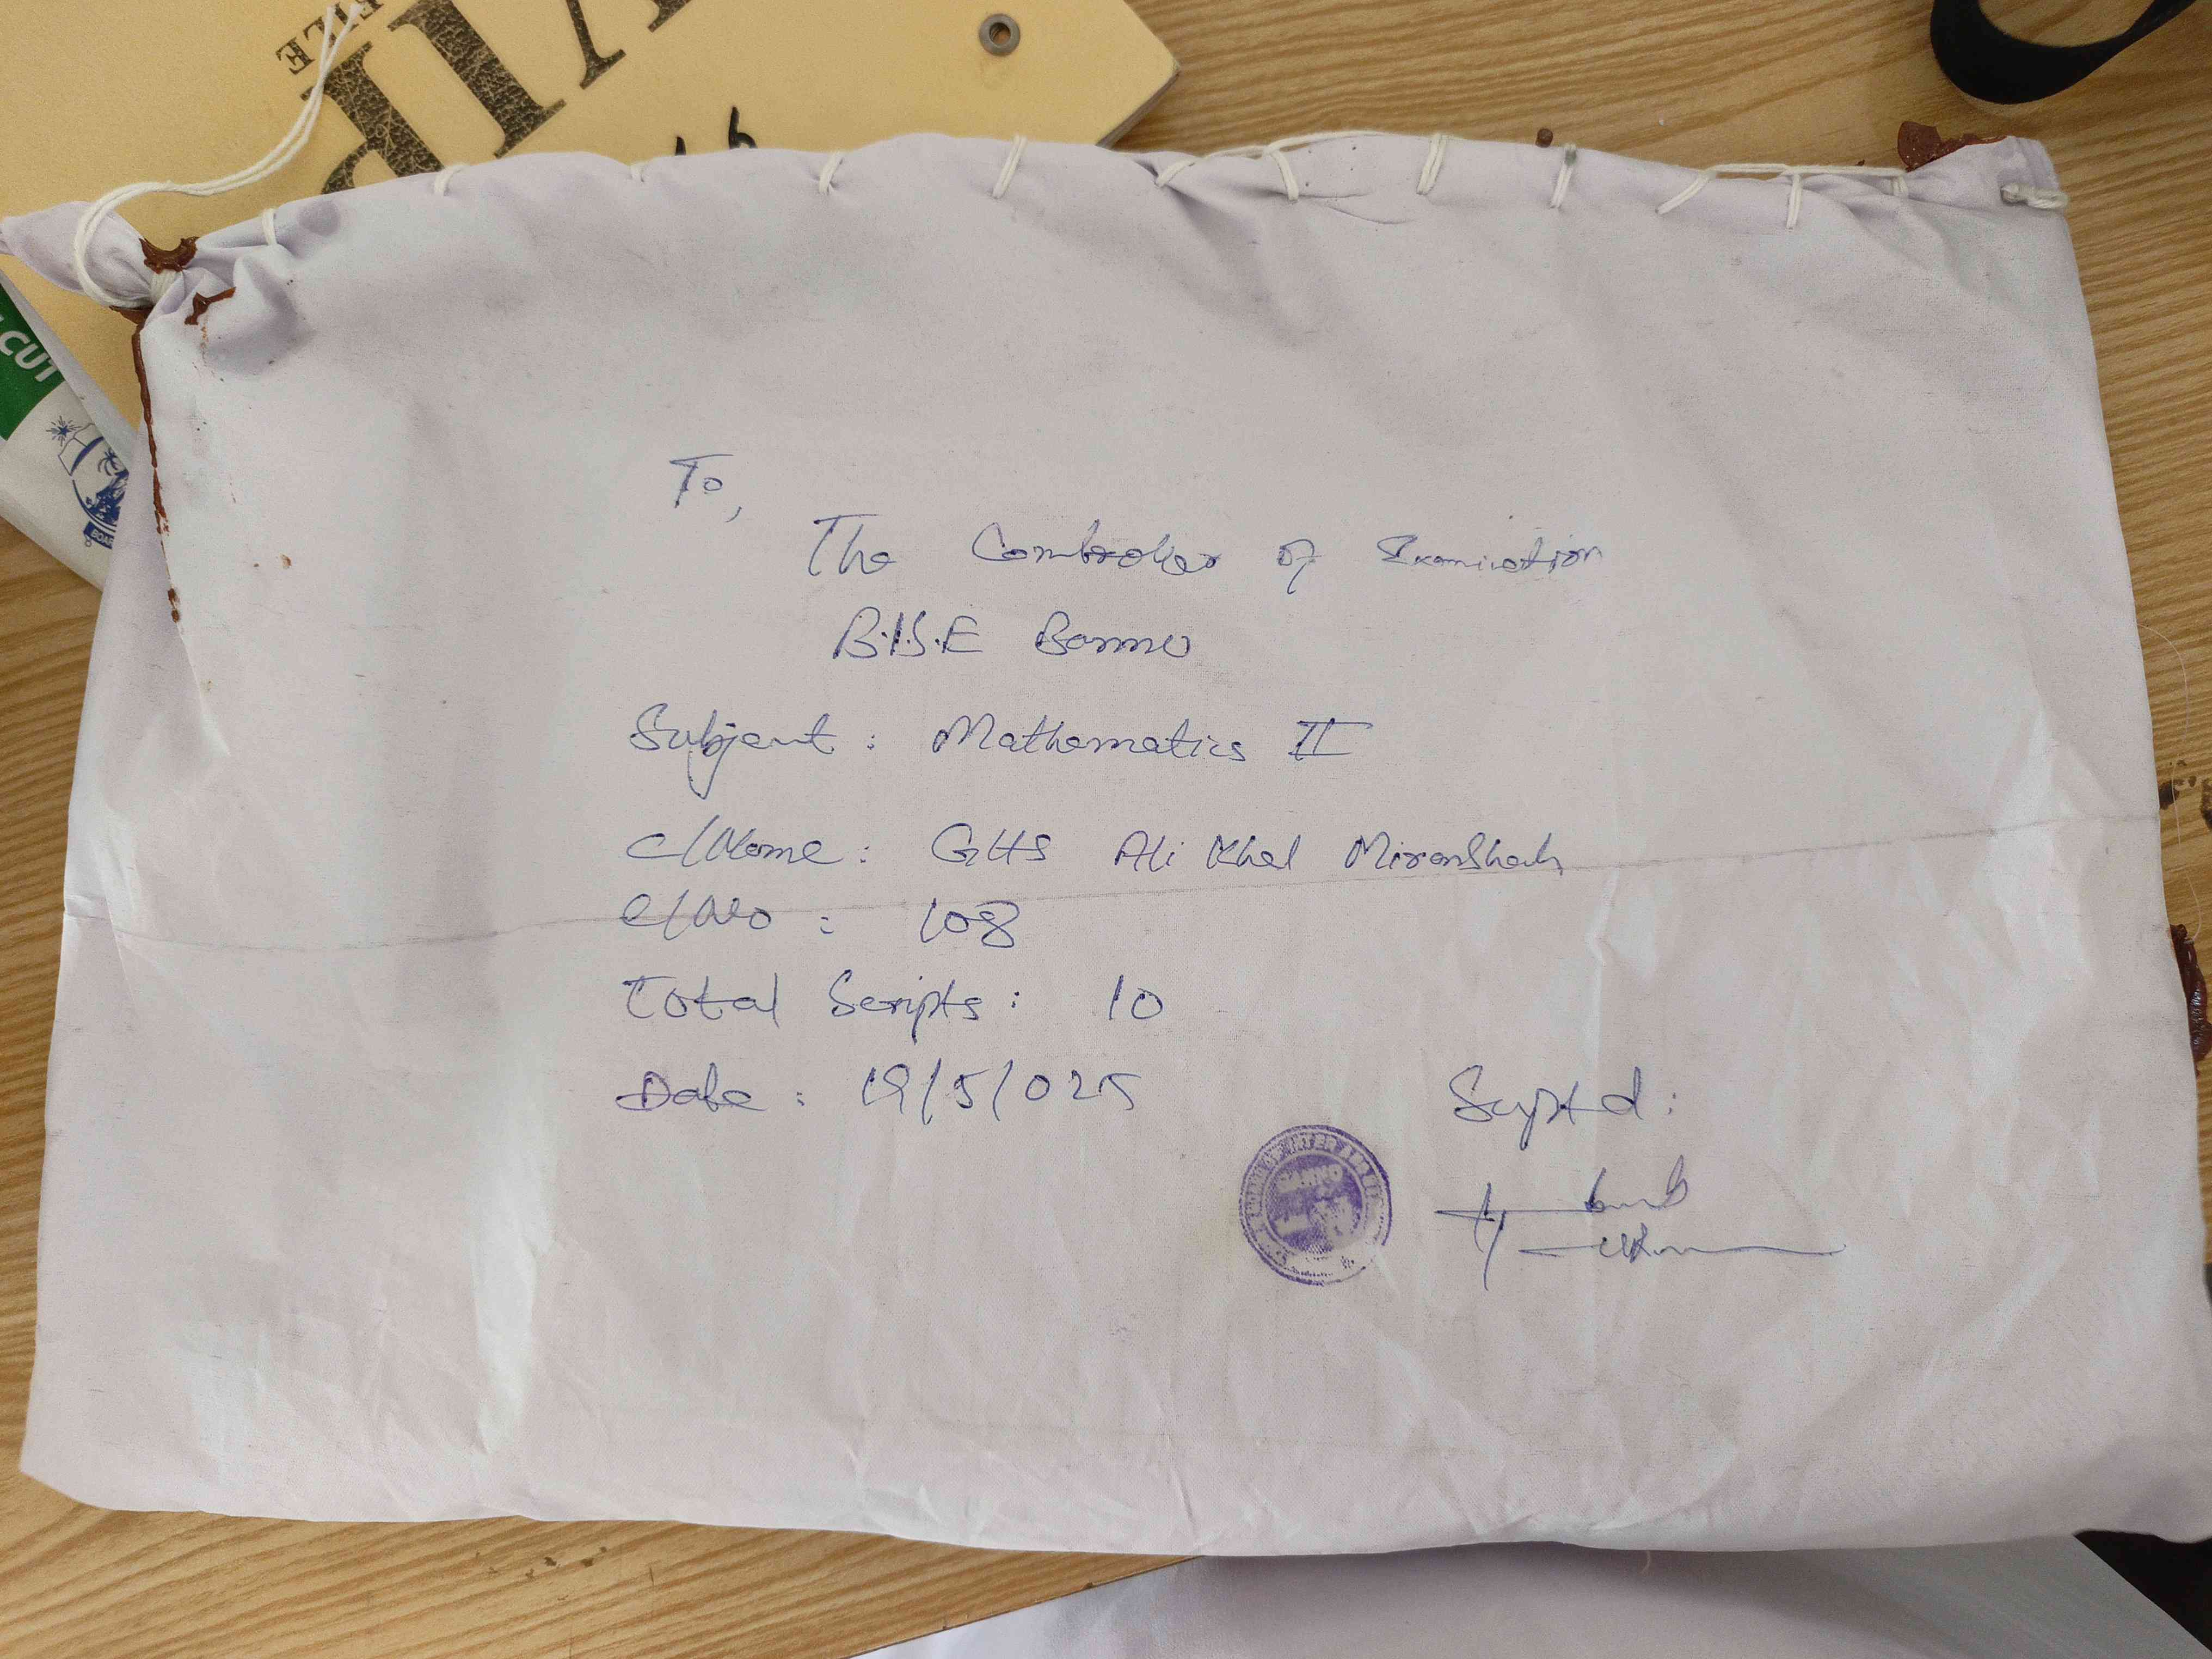 FILE
VIP
CUT
To,
The Controller of Examination
B.I.S.E Bannu
Subject : Mathematics II
C/Name : GHS Ali Khel Miranshah
C/No : 108
Total Scripts : 10
Date : 19/5/025
Suptd :
BANNU